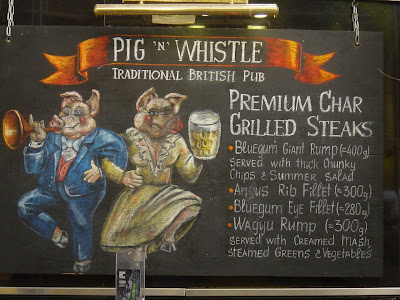 PIG 'N' WHISTLE
TRADITIONAL BRITISH PUB
PREMIUM CHAR
GRILLED STEAKS
• BLUEGUM GIANT RUMP (≈400g)
SERVED WITH THICK CHUNKY
CHIPS & SUMMER SALAD
• ANGUS RIB FILLET (≈300g)
• BLUEGUM EYE FILLET (≈280g)
• WAGYU RUMP (≈300g)
SERVED WITH CREAMED MASH,
STEAMED GREENS & VEGETABLES